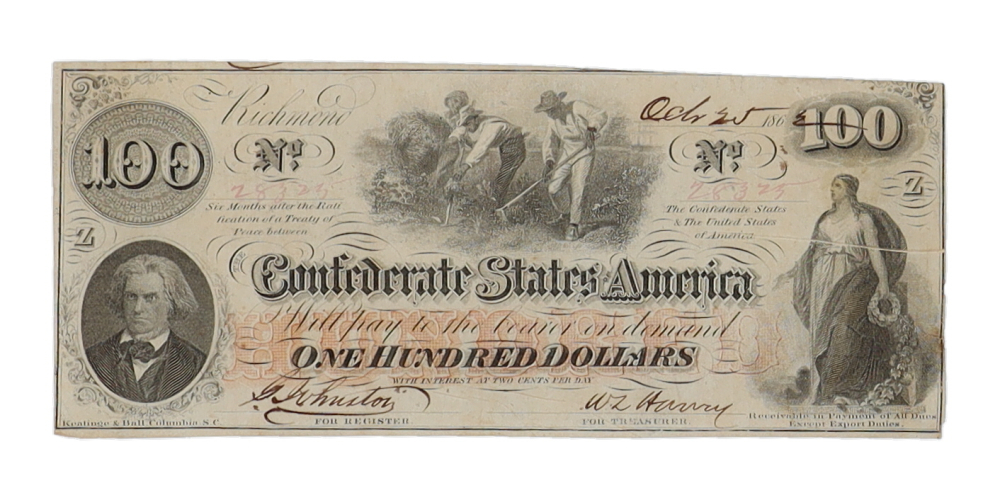 Richmond
Oct 25 1862
100
100
No
No
28325
28325
Z
Z
Six Months after the Rati
fication of a Treaty of
Peace between
The Confederate States
& The United States
of America
THE
Confederate States of America
Will pay to the bearer on demand
HUNDRED
ONE HUNDRED DOLLARS
WITH INTEREST AT TWO CENTS PER DAY
FOR REGISTER
FOR TREASURER.
Keatinge & Ball Columbia S.C.
Receivable in Payment of All Dues
Except Export Duties.